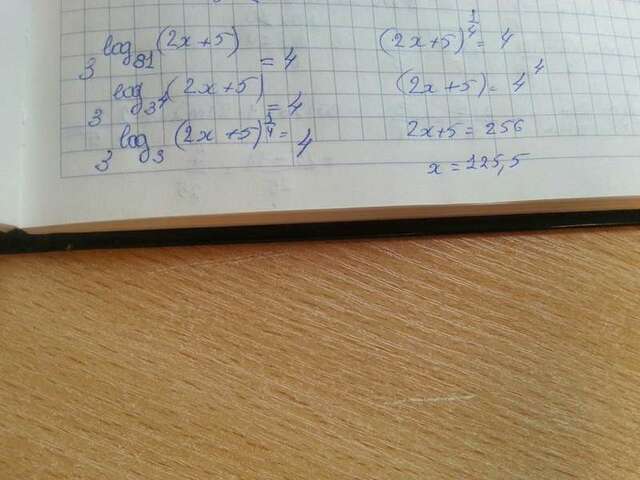 3^{log_{81}(2x+5)} = 4
3^{log_{3^4}(2x+5)} = 4
3^{log_3(2x+5)^{\frac{1}{4}}} = 4
(2x+5)^{\frac{1}{4}} = 4
(2x+5) = 4^4
2x+5 = 256
x = 125,5